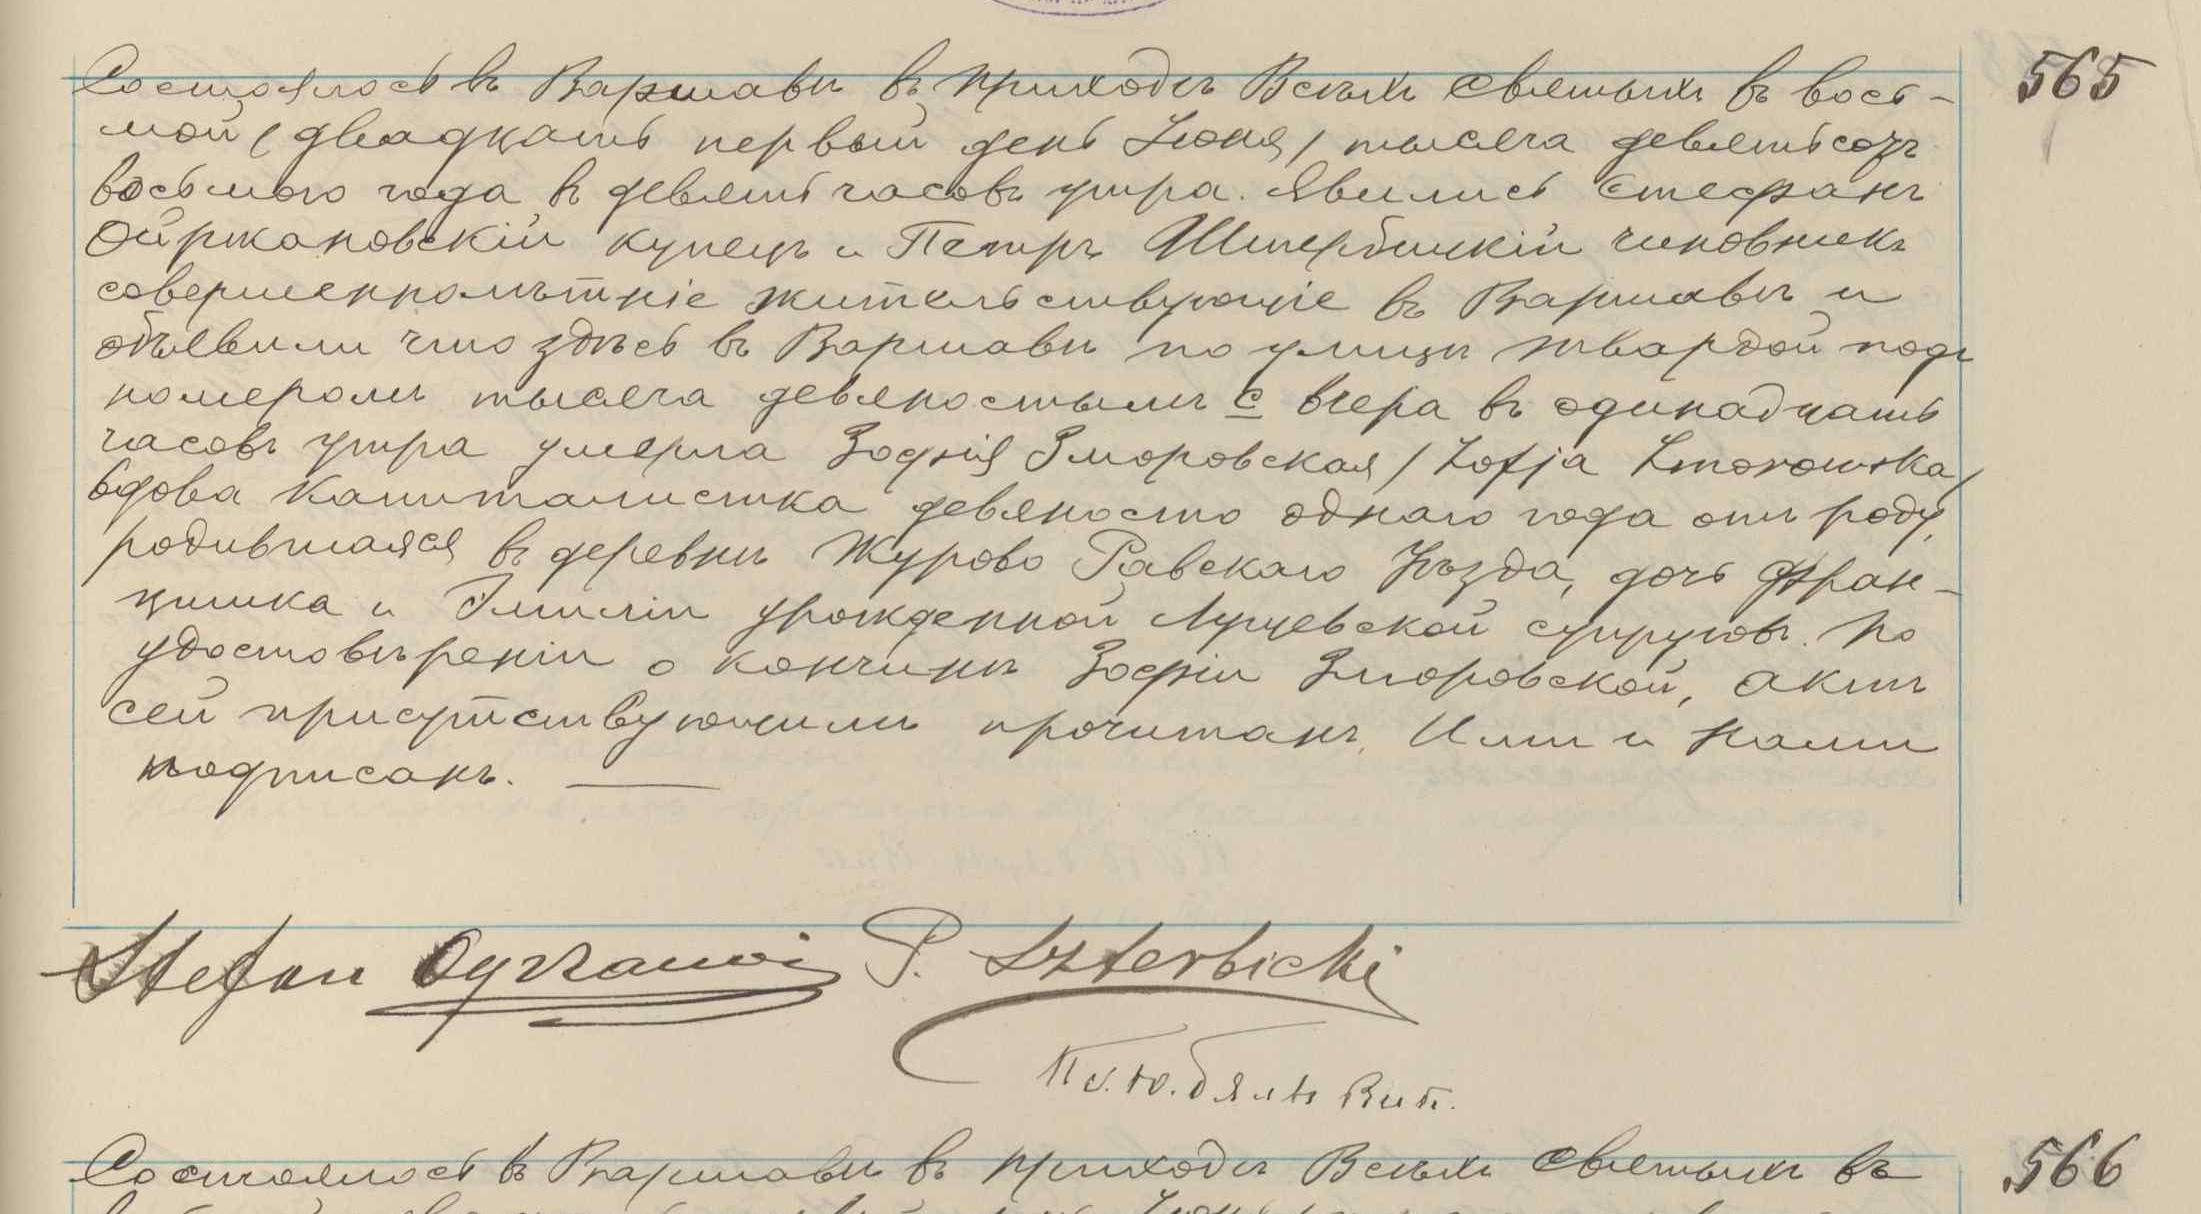 565
Состоялось въ Варшавѣ въ приходѣ Всѣхъ Святыхъ въ вось-
мой (двадцать первый день Іюня) тысяча девятьсотъ
восьмого года въ девять часовъ утра. Явились Стефанъ
Ойржановскій купецъ и Петръ Штербицкій чиновникъ
совершеннолѣтніе жительствующіе въ Варшавѣ и
объявили что здѣсь въ Варшавѣ по улицѣ Твардой подъ
номеромъ тысяча девяностымъ с вчера въ одинадцать
часовъ утра умерла Зофія Зморовская /Zofja Zmorowska/
вдова Капиталистка девяносто одного года отъ роду,
родившаяся въ деревнѣ Журово Равскаго Уѣзда, дочь Фран-
цишка и Эмиліи урожденной Лущевской супруговъ. По
удостовѣреніи о кончинѣ Зофіи Зморовской, актъ
сей присутствующимъ прочитанъ, Ими и Нами
подписанъ.
Stefan P. Szterbicki
566
Состоялось въ Варшавѣ въ приходѣ Всѣхъ Святыхъ въ